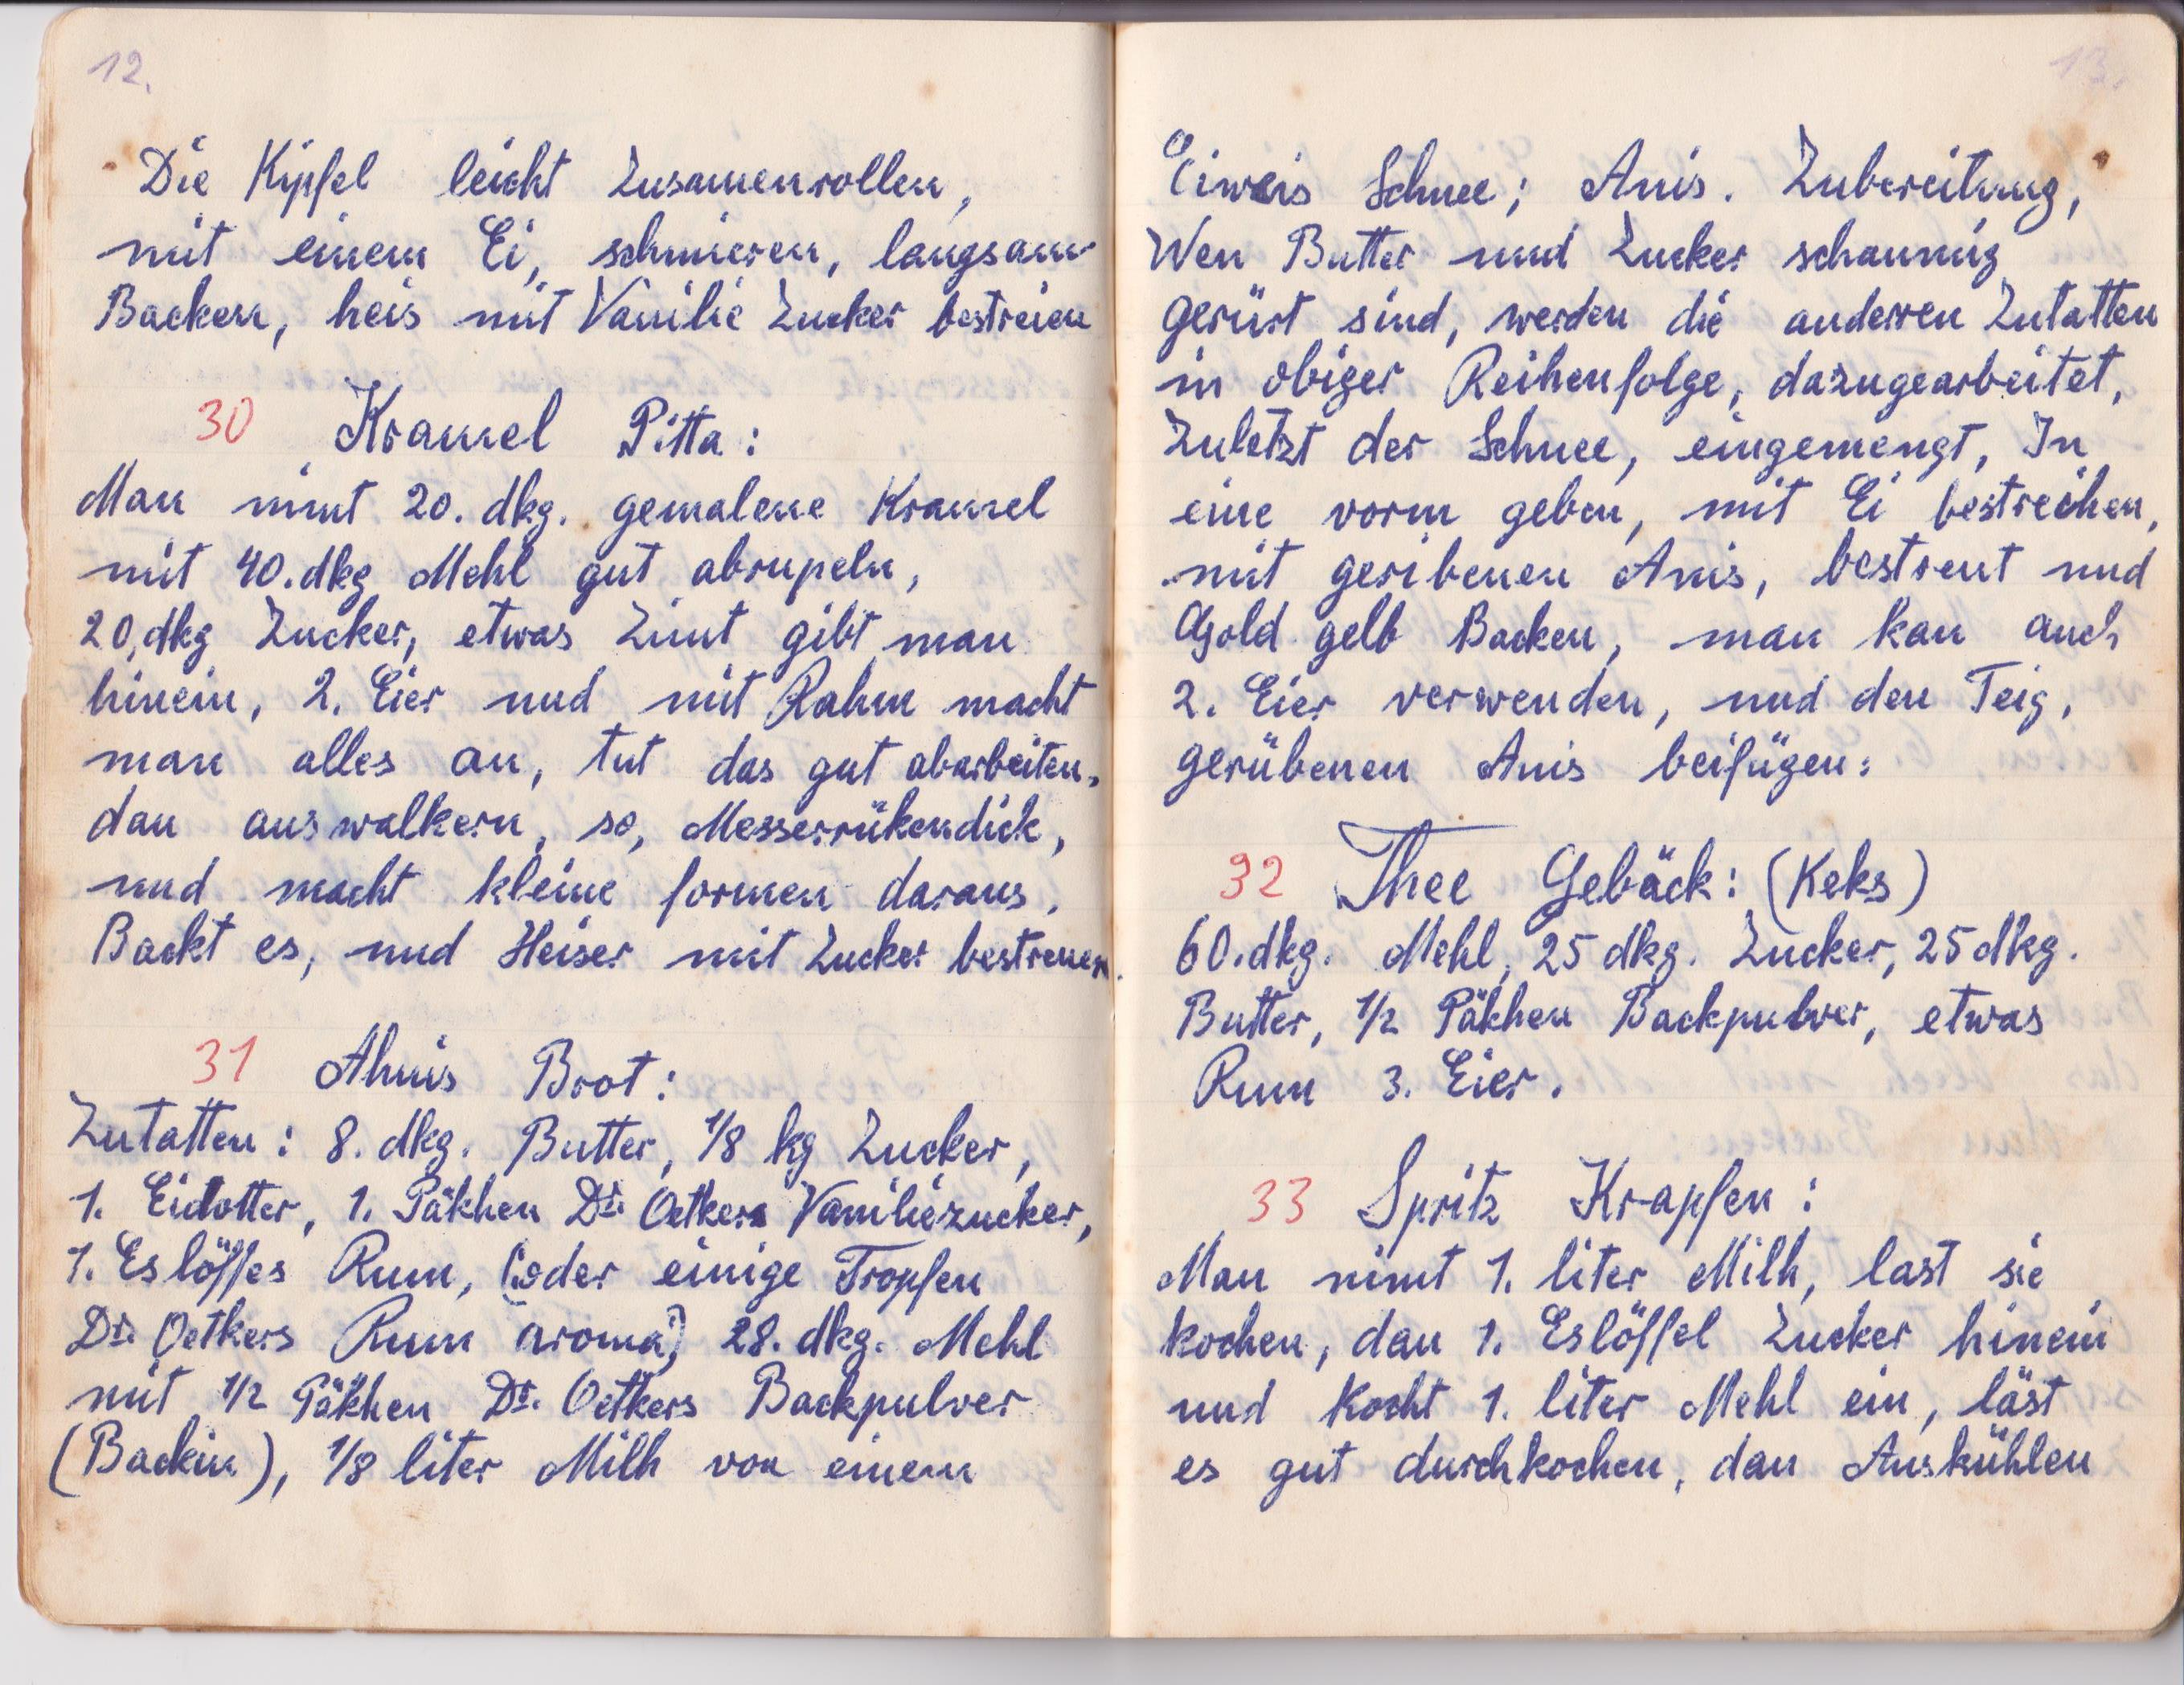 12.
Die Kipfel leicht Zusamenrollen,
mit einem Ei, schmieren, langsam
Backen, heis mit Vanilie Zucker bestreien
30 Kramel Pitta:
Man nimt 20. dkg. gemalene Kramel
mit 40. dkg Mehl gut abrupeln,
20, dkg Zucker, etwas Zimt gibt man
hinein, 2. Eier und mit Rahm macht
man alles an, tut das gut abarbeiten,
dan auswalkern, so, Messerrükendick,
und macht kleine formen daraus,
Backt es, und Heiser mit Zucker bestreuen.
31 Ahnis Brot:
Zutatten: 8. dkg. Butter, 1/8 kg Zucker,
1. Eidotter, 1. Päkhen Dr. Oetkers Vaniliezucker,
1. Eslöffes Rum, (oder einige Tropfen
Dr. Oetkers Rum aroma) 28. dkg. Mehl
mit 1/2 Päkhen Dr. Oetkers Backpulver
(Backin), 1/8 liter Milh von einem
13.
Eiweis Schnee; Anis. Zubereitung,
Wen Butter und Zucker schaumig
gerürt sind, werden die anderren Zutatten
in obiger Reihenfolge, dazugearbeitet,
Zuletzt der Schnee, eingemengt, In
eine vorm geben, mit Ei bestreihen,
mit geribenen Anis, bestreut und
Gold gelb Backen, man kan auch
2. Eier verwenden, und den Teig,
gerübenen Anis beifügen:
32 Thee Gebäck: (Keks)
60. dkg. Mehl, 25 dkg. Zucker, 25 dkg.
Butter, 1/2 Päkhen Backpulver, etwas
Rum 3. Eier.
33 Spritz Krapfen:
Man nimt 1. liter Milh, last sie
kochen, dan 1. Eslöffel Zucker hinein
und Kocht 1. liter Mehl ein, läst
es gut durchkochen, dan Auskühlen